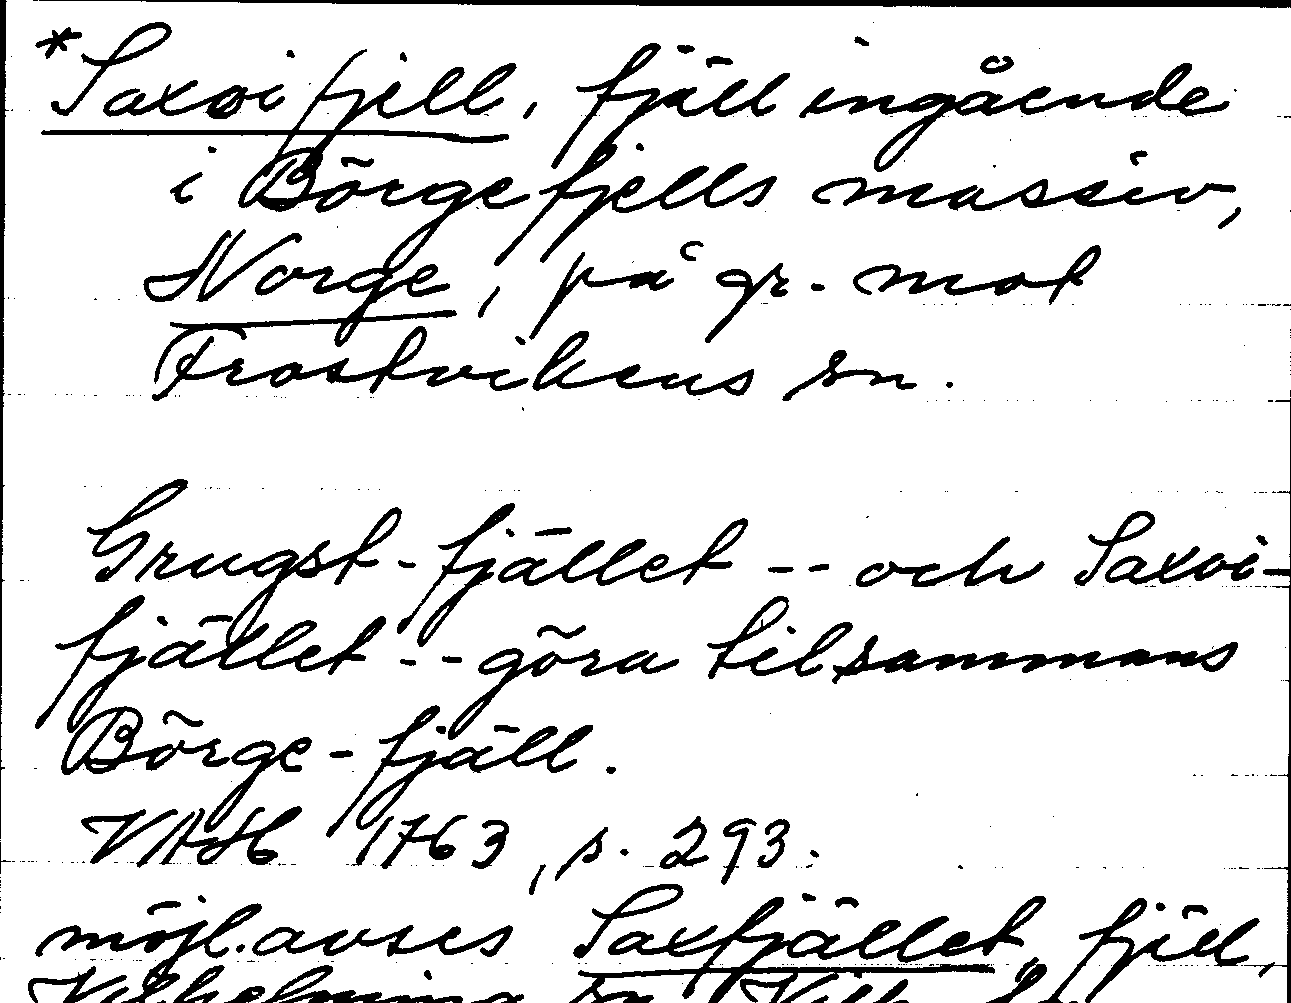 *Saxvifjell, fjäll ingående
i Börgefjells massiv,
Norge, på gr. mot
Frostvikens sn.
Grugst-fjället -- och Saxvi-
fjället -- göra tilsammans
Börge-fjäll.
VAH 1763, s. 293.
möjl. avses Saxfjället, fjäll,
Vilhelmina sn